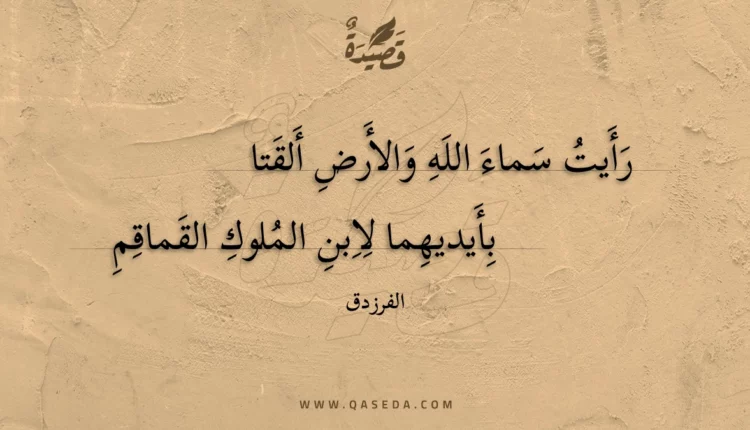 قَصِيدَةٌ
رَأَيتُ سَماءَ اللَهِ وَالأَرضِ أَلقَتا
بِأَيديهِما لِاِبنِ المُلوكِ القَماقِمِ
الفرزدق
WWW.QASEDA.COM